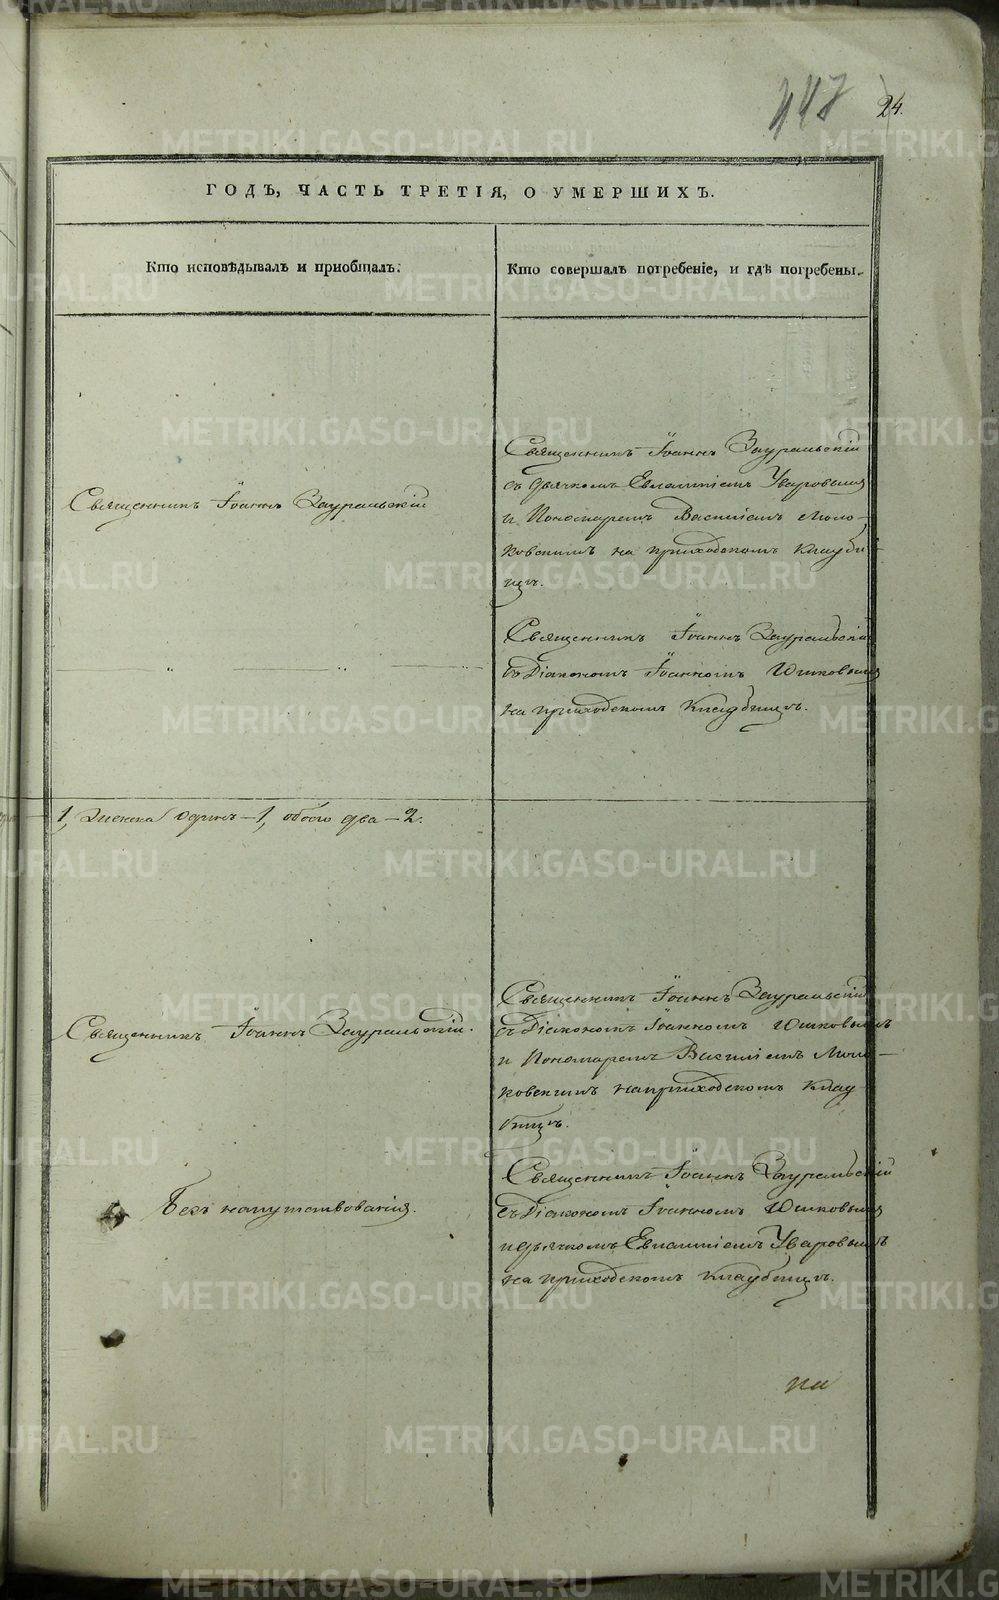 447 24.
ГОДЪ, ЧАСТЬ ТРЕТІЯ, О УМЕРШИХЪ.
Кто исповѣдывалъ и приобщалъ.
Кто совершалъ погребеніе, и гдѣ погребены.
Священникъ Іоаннъ Зауральскій
Священникъ Іоаннъ Зауральскій
съ дьячкомъ Евлампіемъ Уваровымъ
и Пономаремъ Василіемъ Моло-
ковскимъ на приходскомъ кладби-
щѣ.
— „ — „ —
Священникъ Іоаннъ Зауральскій
съ Діакономъ Іоанномъ Юшковымъ
на приходскомъ кладбищѣ.
1, Женска одинъ — 1, обоего два — 2.
Священникъ Іоаннъ Зауральскій.
Священникъ Іоаннъ Зауральскій
съ Діакономъ Іоанномъ Юшковымъ
и Пономаремъ Василіемъ Моло-
ковскимъ на приходскомъ клад-
бищѣ.
Безъ напутствованія.
Священникъ Іоаннъ Зауральскій
съ Діакономъ Іоанномъ Юшковымъ
и дьячкомъ Евлампіемъ Уваровымъ
на приходскомъ кладбищѣ.
METRIKI.GASO-URAL.RU